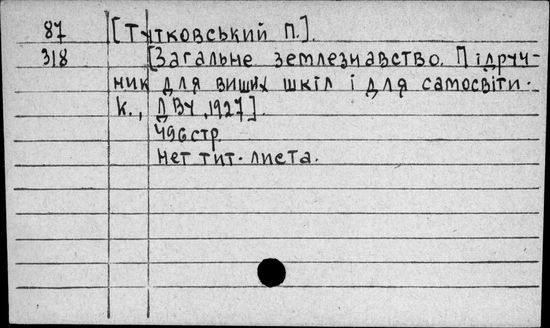 87 [Тутковський П.].
318 [Загальне землезнавство. Підруч-
ник для вищих шкіл і для самосвіти.
К., ДВУ, 1927].
496 стр.
нет тит. листа.